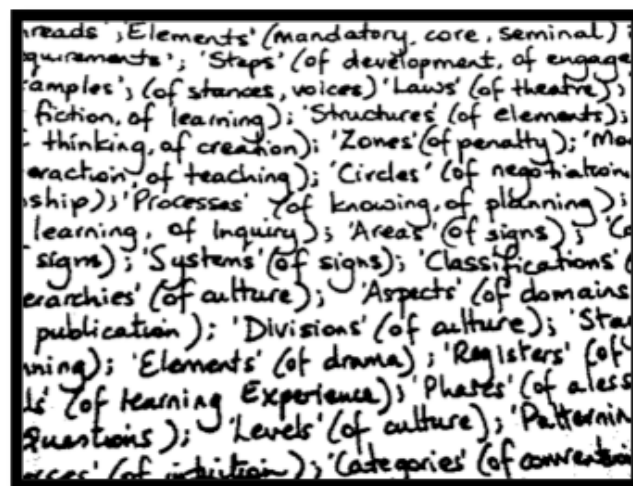 reads'; 'Elements' (mandatory, core, seminal)
quirements'; 'Steps' (of development, of engage
amples'; (of stances, voices) 'Laws' (of theatre);
fiction, of learning); 'Structures' (of elements);
thinking, of creation); 'Zones' (of penalty); 'Mo
eraction, of teaching); 'Circles' (of negotiation,
ship); 'Processes' (of knowing, of planning);
learning, of Inquiry); 'Areas' (of signs); 'Co
signs); 'Systems' (of signs); 'Classifications' (
erarchies' (of culture); 'Aspects' (of domains
publication); 'Divisions' (of culture); 'Sta
nning); 'Elements' (of drama); 'Registers' (of
ds' (of learning Experience); 'Phases' (of a less
Questions); 'Levels' (of culture); 'Patternin
orces' (of intuition); 'Categories' (of convention